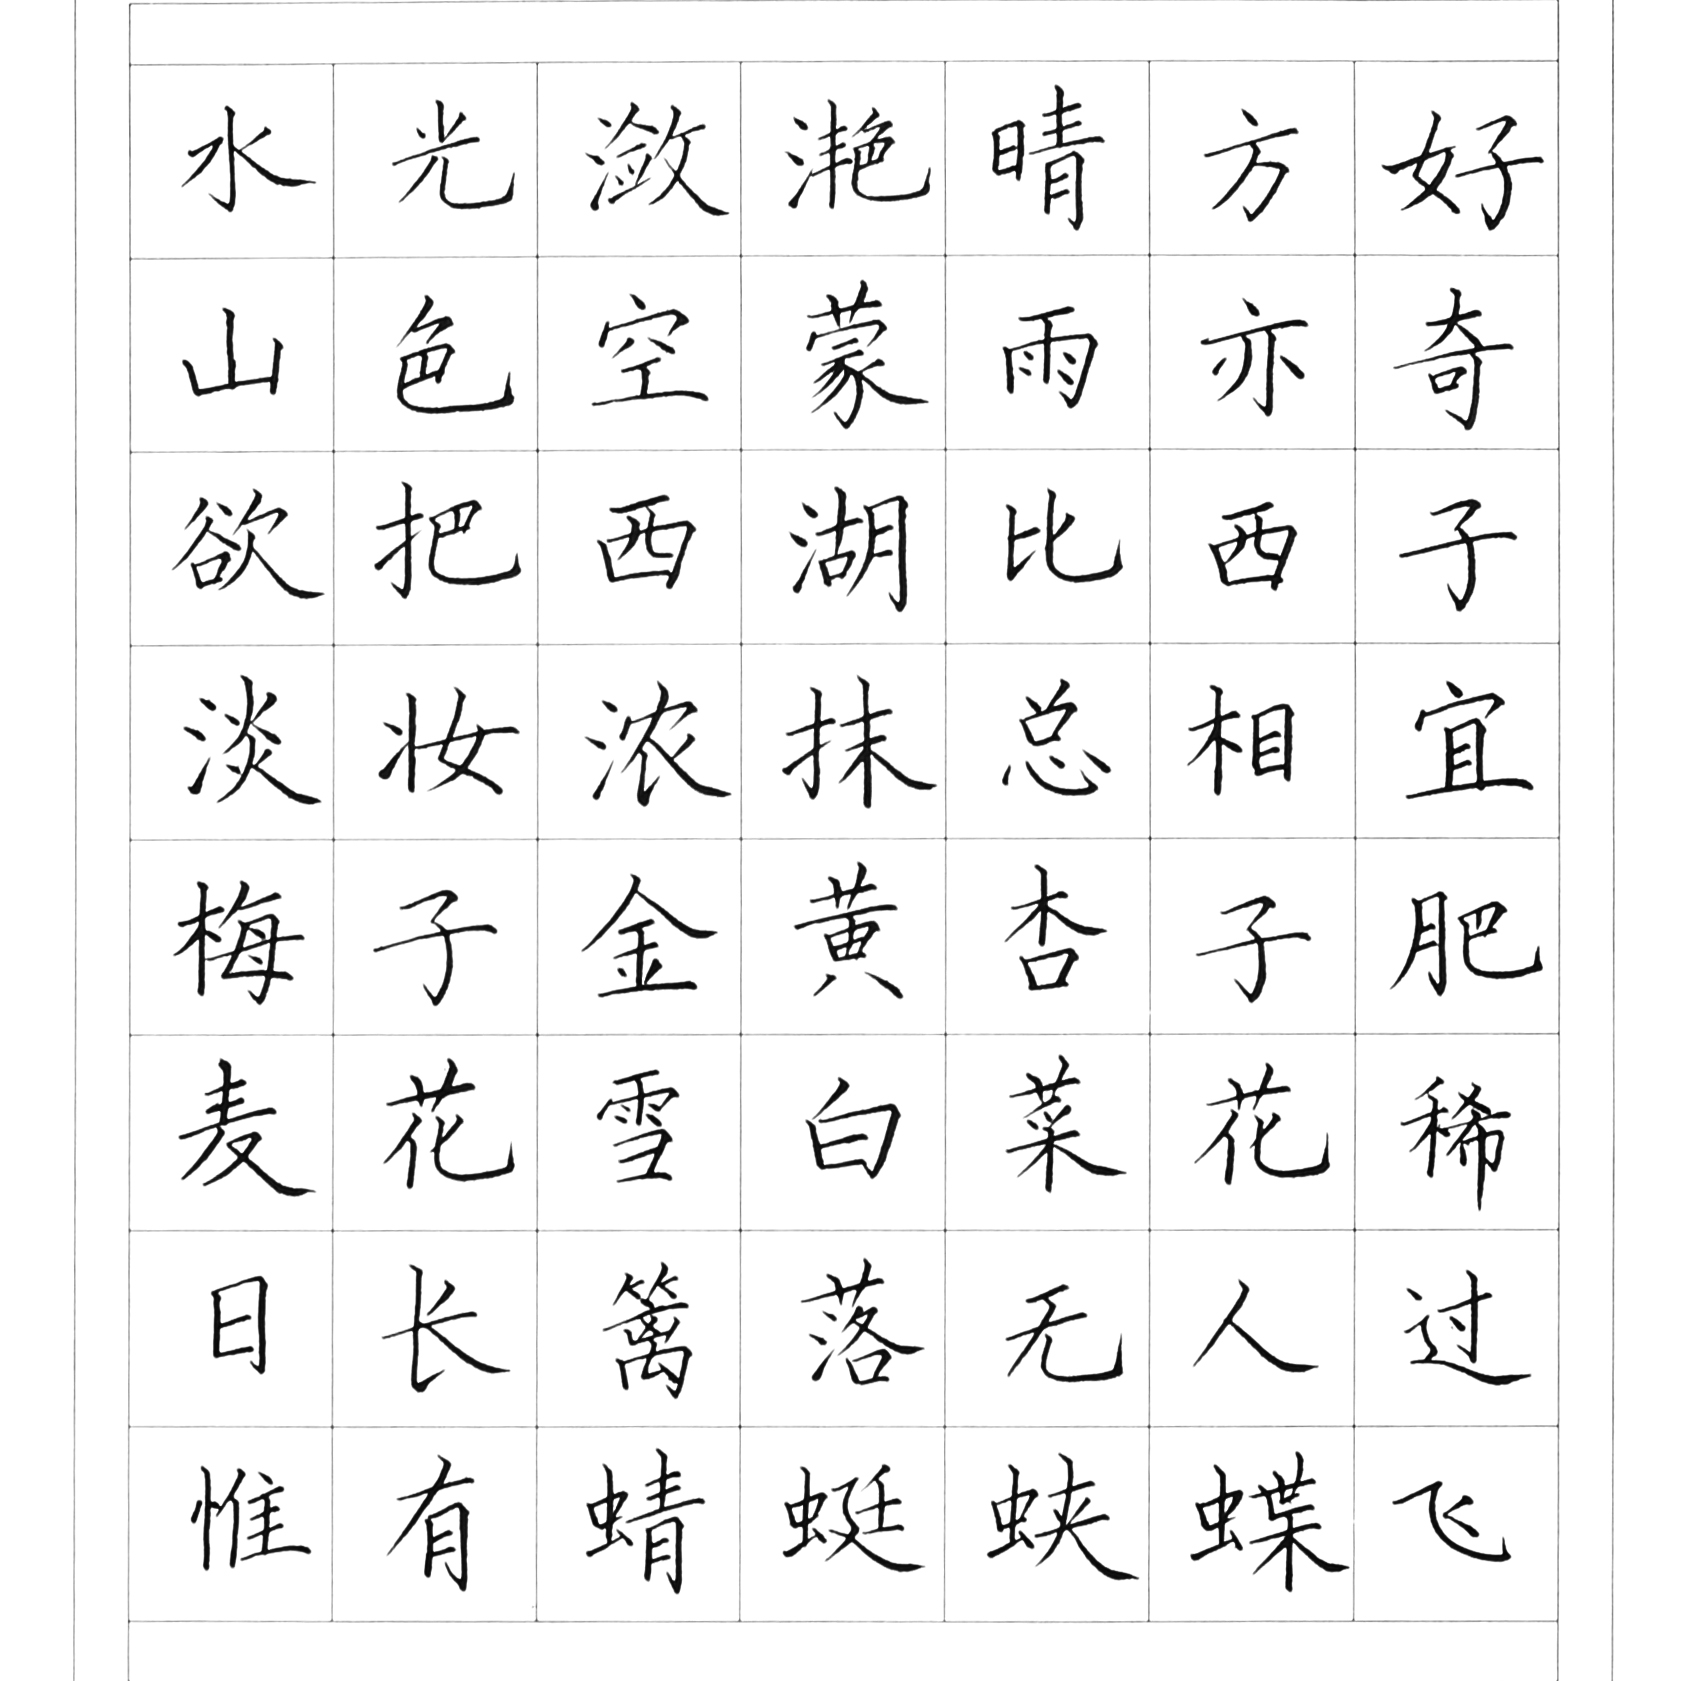 水光潋滟晴方好
山色空蒙雨亦奇
欲把西湖比西子
淡妆浓抹总相宜
梅子金黄杏子肥
麦花雪白菜花稀
日长篱落无人过
惟有蜻蜓蛱蝶飞